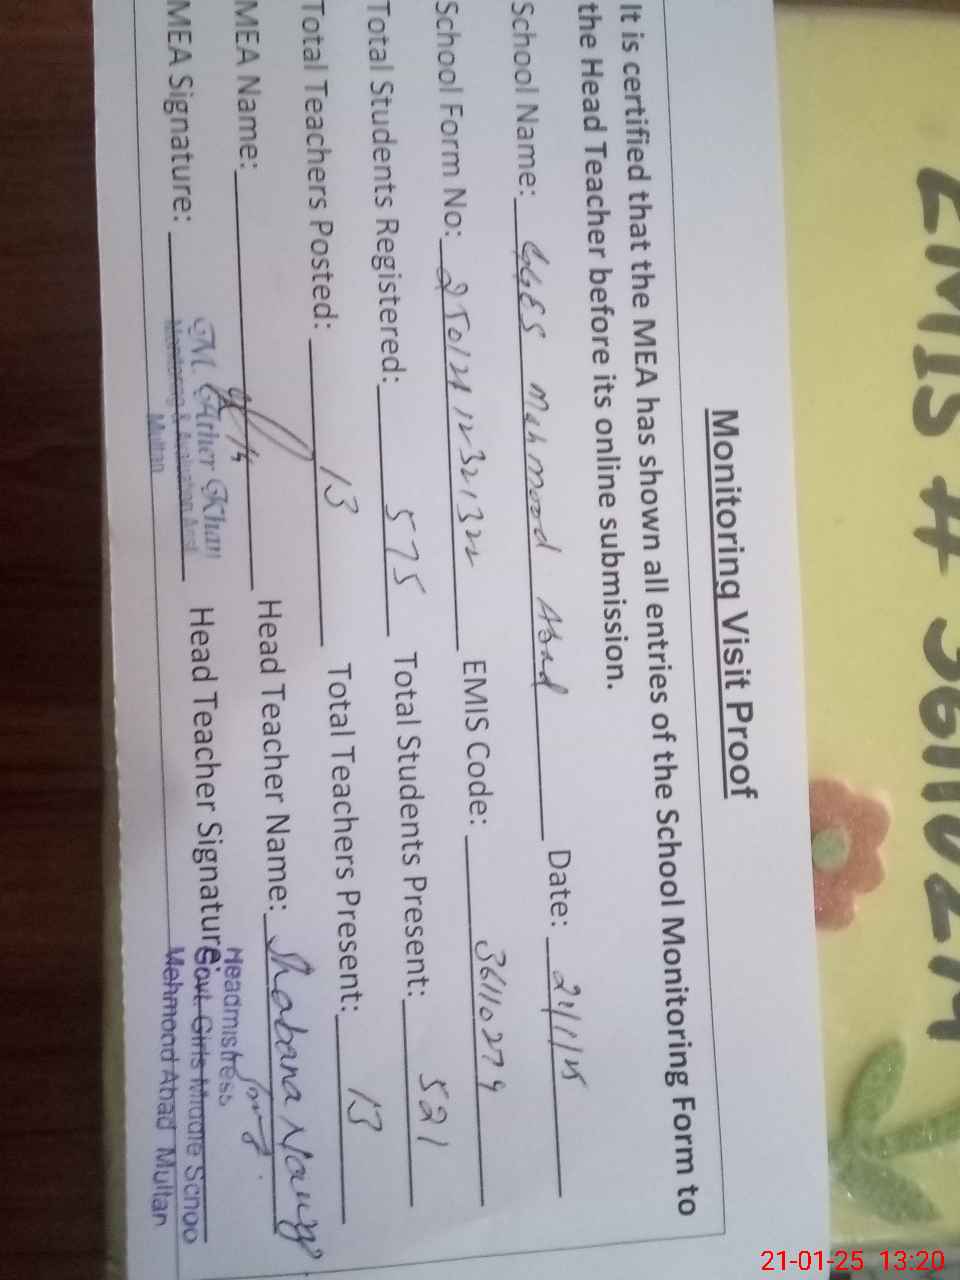 EMIS #
Monitoring Visit Proof
It is certified that the MEA has shown all entries of the School Monitoring Form to
the Head Teacher before its online submission.
School Name: GGES Mehmood Abad Date: 21/1/25
School Form No: EMIS Code: 36110279
Total Students Registered: 575 Total Students Present: 521
Total Teachers Posted: 13 Total Teachers Present: 13
MEA Name: Head Teacher Name: Shabana
MEA Signature: Head Teacher Signature:
Khan
Monitoring & Evaluation Asst
Multan
Headmistress
Govt. Girls Middle Schoo
Mehmood Abad Multan
21-01-25 13:20